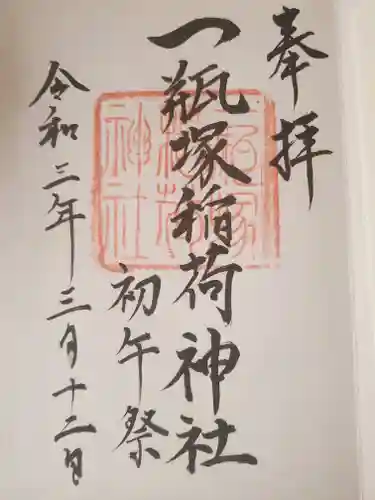 奉拝
一瓶塚稲荷神社
初午祭
令和三年三月十二日